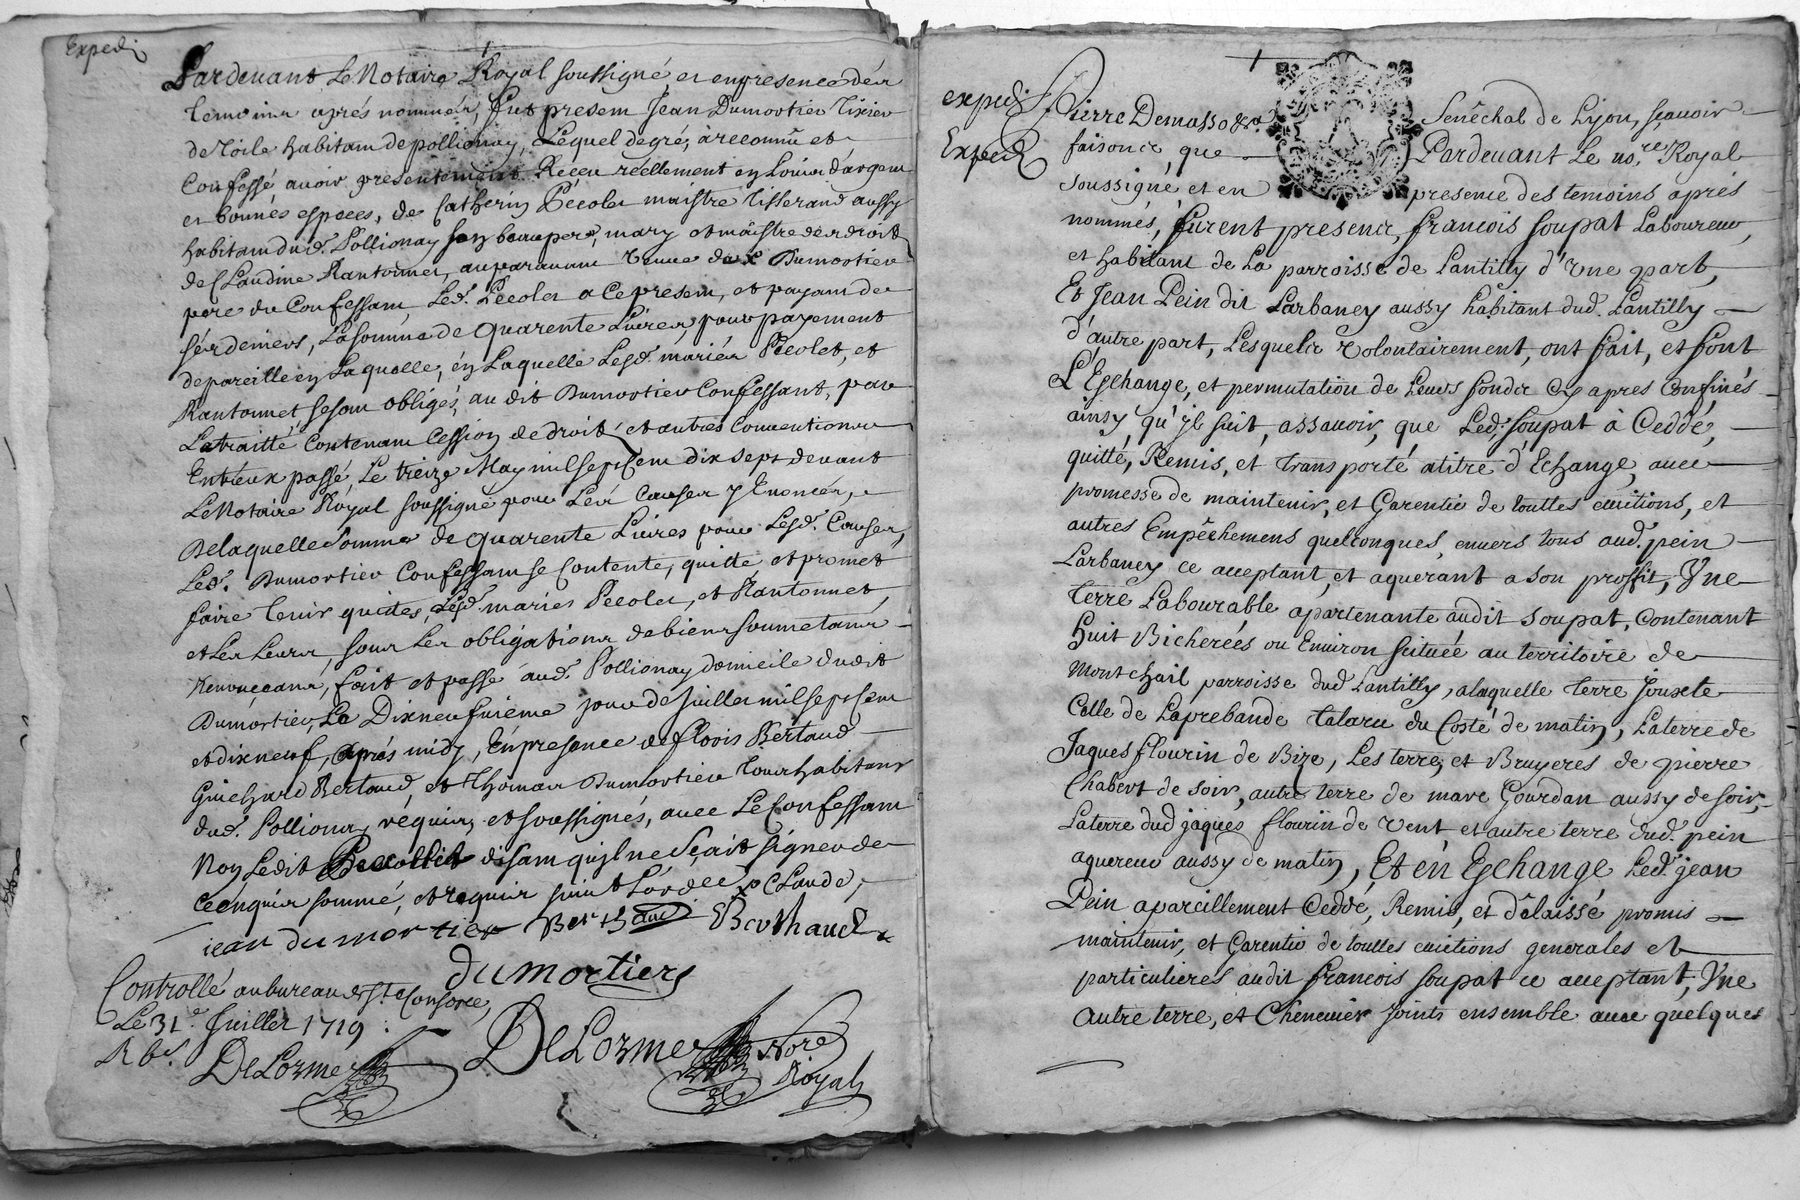 Expedi
Pardevant Le Notaire Royal soussigné et en presence des
temoins aprés nommés, fut present Jean Dumortier tixier
de toile habitant de pollionay, Lequel de gré, à reconnû et
Confessé avoir presentement Receu réellement en Louis d'argent
et bonnes especes, de Catherin Pécolet maistre tisserand aussy
habitant dud. Pollionay son beaupere, mary et maistre des droits
de Claudine Rantonnet, auparavant veuve de Dumortier
pere du Confessant, Led. Pecolet a ce present, et payant de
ses deniers, La somme de quarente Livres pour payement
de pareille en Laquelle, en Laquelle Lesd. mariés Pecolet, et
Rantonnet se sont obligés, au dit Dumortier Confessant, par
Le traitté Contenant Cession de droits et autres Conventions
Entreux passé, Le treize May mil sept Cent dix sept devant
Le Notaire Royal soussigné pour Les Causes y Enoncés,
De laquelle Somme de quarente Livres pour Lesd. Causes,
Led. Dumortier Confessant se Contente, quitte, et promet
faire tenir quittes, Lesd. mariés Pecolet, et Rantonnet,
et Les Leurs, sous Les obligations de biens soumetans
Renonçeans, fait et passé aud. Pollionay domicile dudit
Dumortier, Le Dixneufvieme jour de Juillet mil sept Cent
et dixneuf, aprés midy, En presence de Clovis Bertaud
Guichard Bertaud, et Thomas Dumortier tous habitans
dud. Pollionay requis, et soussignés, avec Le Confessant
Non Ledit Pecollet disant qu'il ne Sçait signer de
ce enquis sommé, et requis suivant L'ordce Claude,
jean dumortier Berthaud Berthaud
dumortiers
Controllé au bureau de Ste Consorce
Le 31e Juillet 1719
R 6s. DeLorme
DeLorme Nore
Royal
expedi
Expedi
Pierre Demasso Senêchal de Lyon, sçavoir
faisons que Pardevant Le nore Royal
soussigné et en presence des temoins aprés
nommés, furent presens, francois soupat Laboureur,
et habitant de La parroisse de Lantilly d'Une part,
Et Jean Pein dit Larbaney aussy habitant dud. Lantilly
d'autre part, Lesquels volontairement, ont fait, et font
L'Eschange, et permutation de Leurs fonds cy apres Confinés
ainsy qu'jl suit, assavoir, que Led. soupat à Ceddé,
quitté, Remis, et transporté atitre d'Echange, avec
promesse de maintenir, et Garentie de touttes evictions, et
autres Empêchemens quelconques, envers tous aud. pein
Larbaney ce acceptant, et aquerant a son proffit, Une
terre Labourable apartenante audit Soupat, Contenant
huit Bicherées ou Environ scituée au territoire de
Montchail parroisse dud Lantilly, alaquelle terre Jouxte
Celle de Laprebande talaru du Costé de matin, Laterre de
Jaques flourin de Bize, Les terre et Bruyeres de pierre
Chabert de soir, autre terre de marc Gourdan aussy de soir,
Laterre dud jaques flourin de vent et autre terre dud. pein
aquereur aussy de matin, Et en Eschange Led. jean
Pein apareillement Ceddé, Remis, et délaissé promis
maintenir, et Garentie de touttes evictions generales et
particulieres audit francois soupat ce acceptant, Une
autre terre, et Chenevier joints ensemble avec quelques